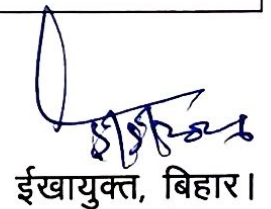 ईखायुक्त, बिहार।